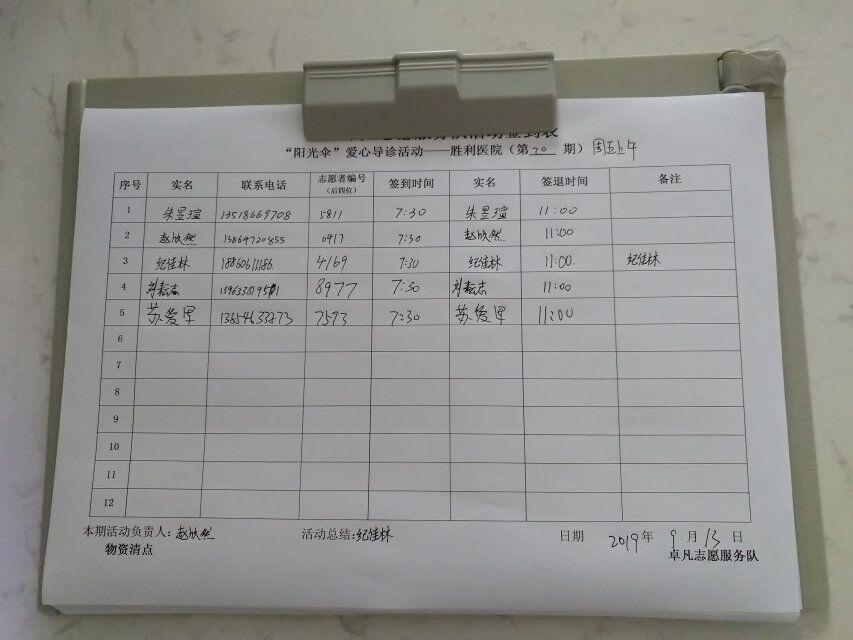 服务队活动签到表
“阳光伞”爱心导诊活动——胜利医院（第20期）周五上午
序号 实名 联系电话 志愿者编号（后四位） 签到时间 实名 签退时间 备注
1 朱昱瑄 13518669708 5811 7:30 朱昱瑄 11:00
2 赵欣然 13869720855 0917 7:30 赵欣然 11:00
3 纪佳林 18860611186 4169 7:30 纪佳林 11:00 纪佳林
4 刘耘志 8977 7:30 刘耘志 11:00
5 苏爱军 13654633273 7593 7:30 苏爱军 11:00
6
7
8
9
10
11
12
本期活动负责人：赵欣然 活动总结：纪佳林 日期 2019年9月13日
物资清点 卓凡志愿服务队